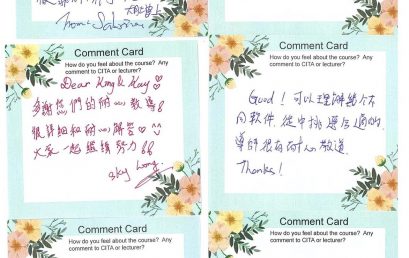 大財上
Comment Card
How do you feel about the course? Any
comment to CITA or lecturer?
Dear King & Kay
多謝你們的耐心教導
很詳細和耐心解答
大家一起繼續努力
Sky Wong
Comment Card
How do you feel about the course? Any
comment to CITA or lecturer?
Good! 可以理解幾個不
同軟件, 從中挑選合適的,
導師很有耐心教導.
Thanks!
Comment Card
How do you feel about the course? Any
comment to CITA or lecturer?
Comment Card
How do you feel about the course? Any
comment to CITA or lecturer?